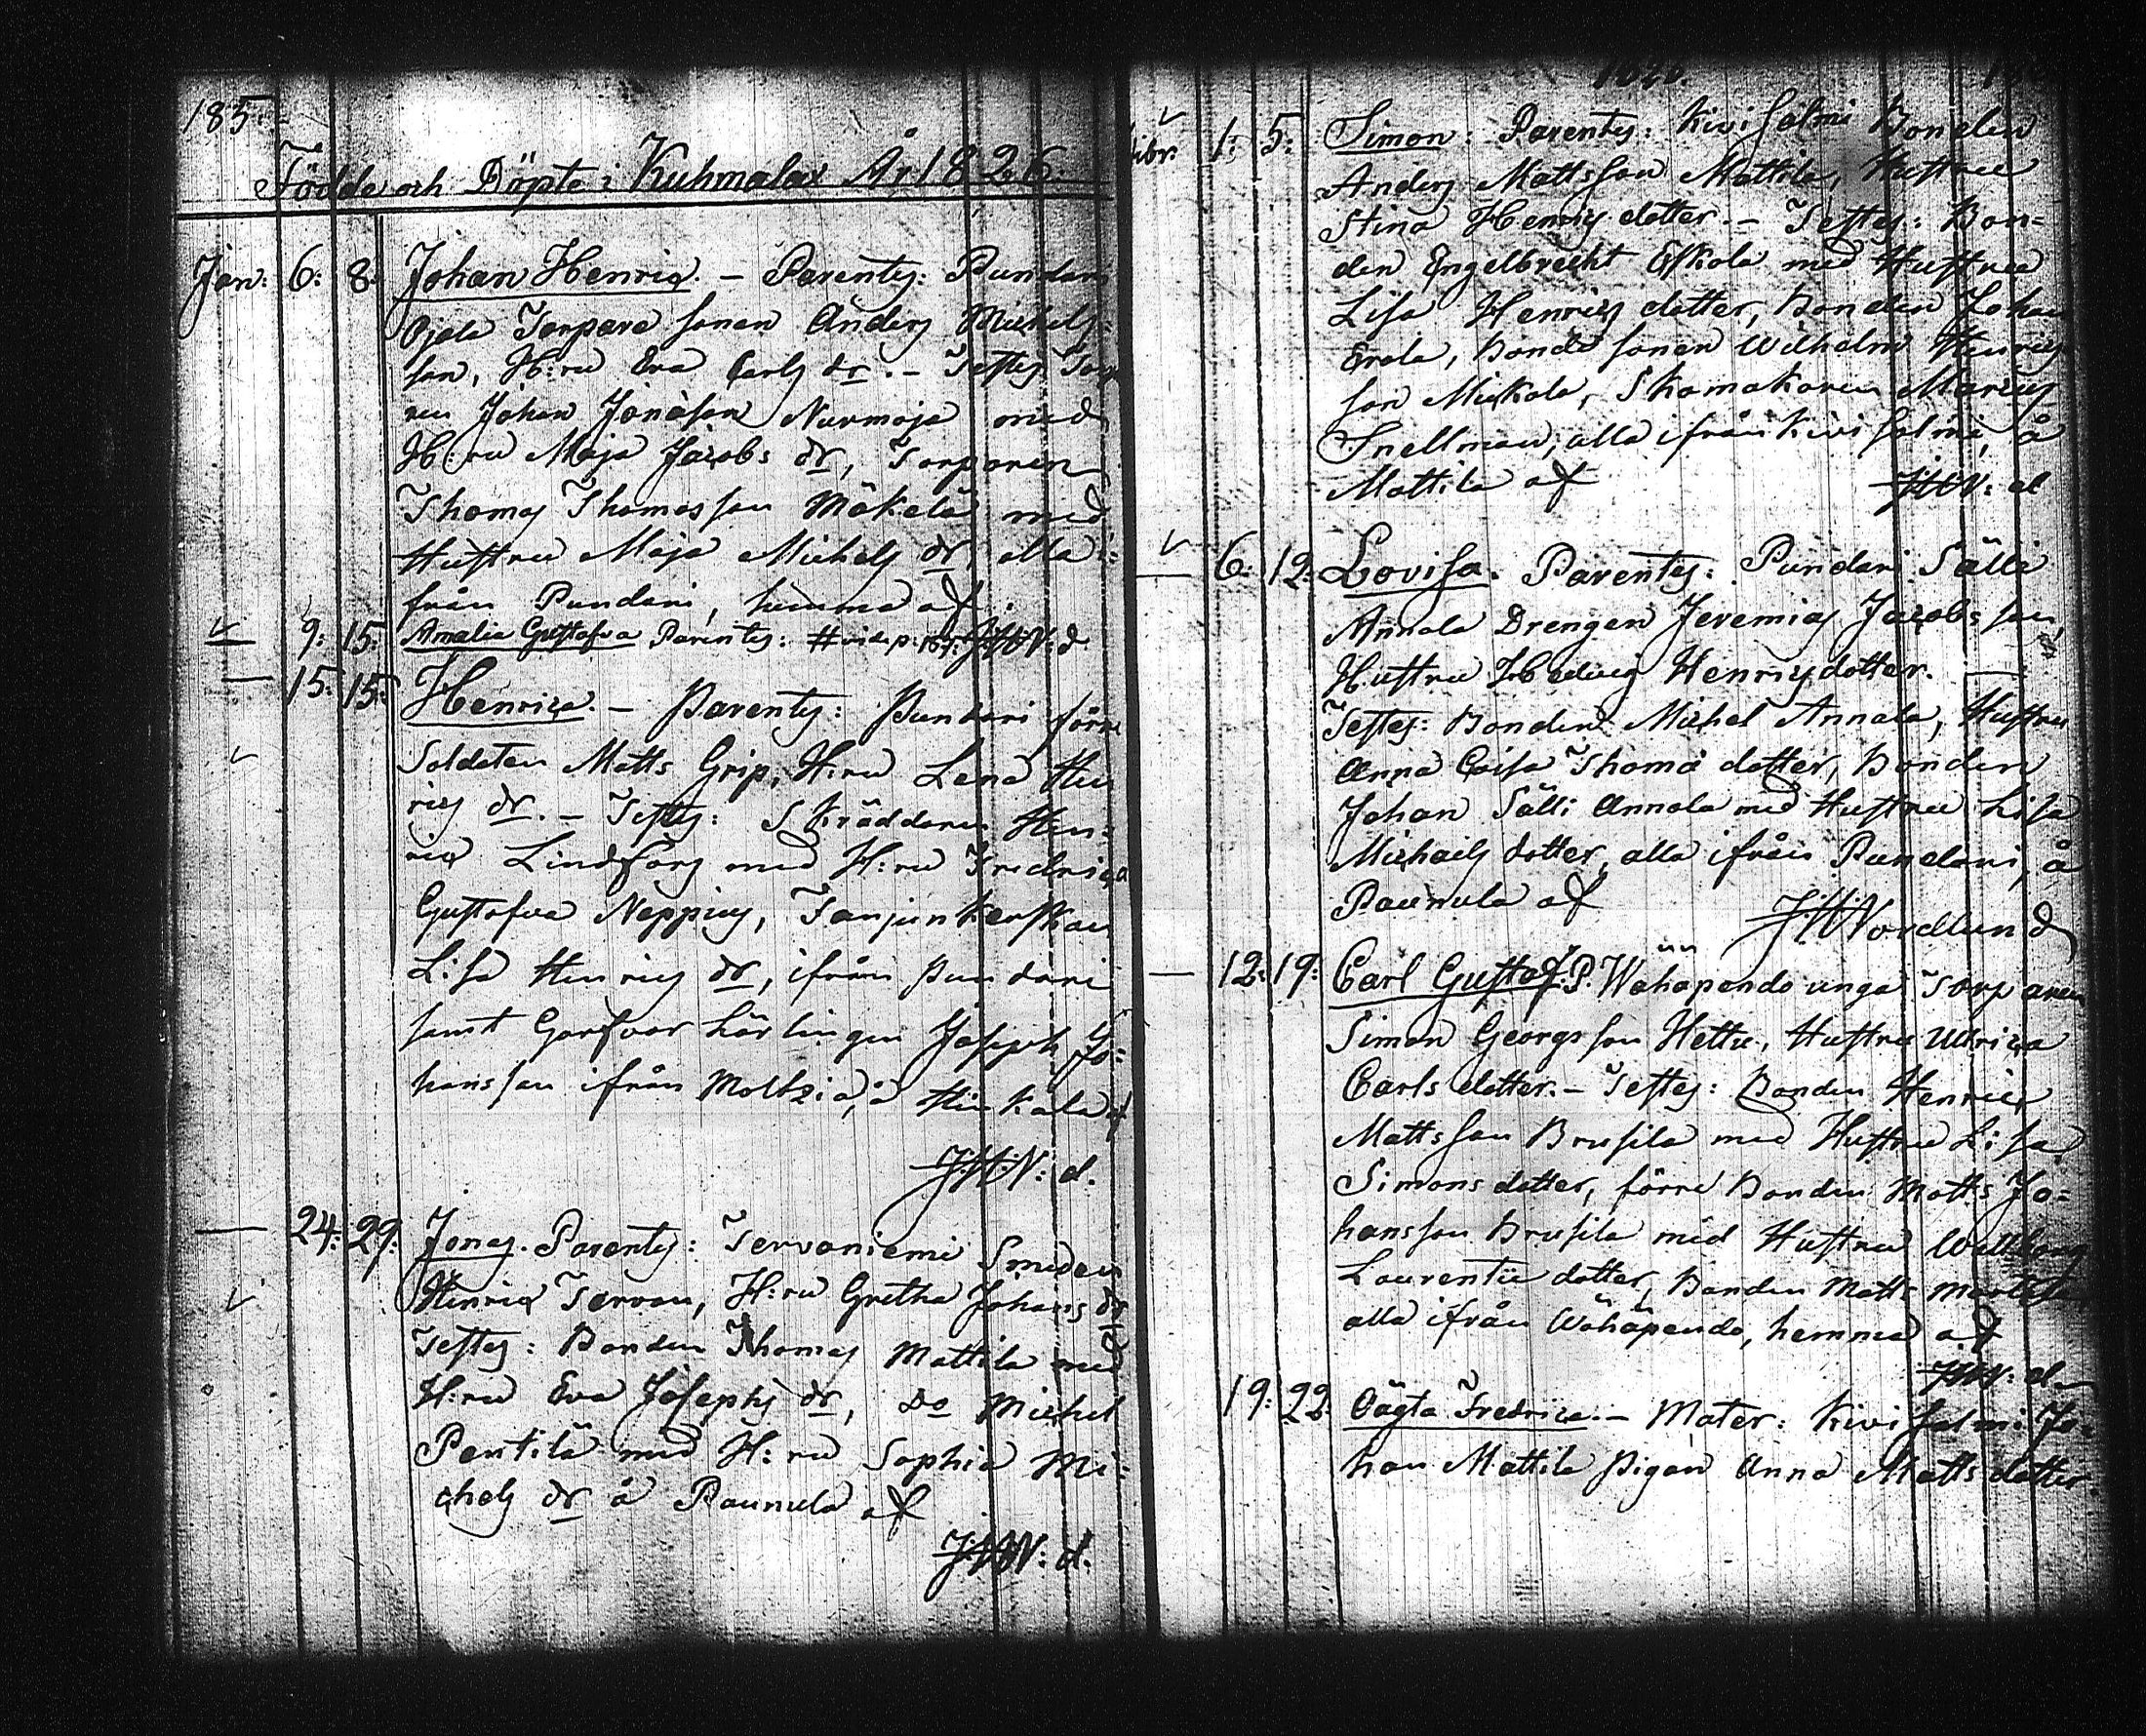 185.
Födde och Döpte i Kuhmalax År 1826.
Jan: 6: 8. Johan Henric. – Parentes: Pundars
Ojala Torpare sonen Anders Michels-
son, H:ru Eva Carls dr. – Testes Torpa
ren Johan Jonasson Nurmoja med
H:ru Maja Jacobs dr, Torparen
Thomas Thomasson Mäkelä med
Hustru Maja Michels dr, alla i-
från Pundari, hemma af.
9: 15: Amalia Gustafva Parentes: # vid. p: JHN: d
15: 15: Henrica. – Parentes: Pundari förre
Soldaten Matts Grip, H:ru Lena Hen
rics dr. – Testes: Skräddaren Hen-
ric Lindfors med H:ru Fredrica
Gustafva Neppius, Fanjunkerskan
Lisa Henrics dr, ifrån Pundari
samt Garfvar Lärlingen Joseph Jo-
hansson ifrån Moltzia, å Hinkala af
JHN: d.
24: 29: Jonas. Parentes: Tervaniemi Smeden
Henric Tervon, H:ru Gretha Johans dr
Testes: Bonden Thomas Mattila med
H:ru Eva Josephs dr, Do Michel
Pentilä med H:ru Sophia Mi-
chels dr å Paunula af
JHN: d.
1826.
1: 5: Simon: Parentes: Kivisalmi Bonden
Anders Mattsson Mattila, Hustru
Stina Henrics dotter. – Testes: Bon-
den Engelbrecht Eskola med Hustru
Lisa Henrics dotter, Bonden Johan
Erola, Bonde sonen Wilhelm Henrics
son Mickola, Skomakaren Marcus
Snellman, alla ifrån Kivisalmi, å
Mattila af JHN: d
6: 12: Lovisa. Parentes: Pundari Sälli
Annala Drengen Jeremias Jacobsson,
Hustru Hedvig Henrics dotter.
Testes: Bonden Michel Annala, Hustru
Anna Caisa Thomæ dotter, Bonden
Johan Sälli Annala med Hustru Lisa
Michails dotter, alla ifrån Pundari, å
Paunula af JHNordlund
12: 19: Carl Gustaf. P. Wähäpendo unga Torparen
Simon Georgsson Hettu, Hustru Ulrica
Carls dotter. – Testes: Bonden Henric
Mattsson Brusila med Hustru Lisa
Simons dotter, förre Bonden Matts Jo-
hansson Brusila med Hustru Wallborg
Laurentii dotter, Bonden Matts
alla ifrån Wähäpendo, hemma af
JHN: d.
19: 22: Oägta Fredrica. – Mater: Kivisalmi Jo-
han Mattila Pigan Anna Matts dotter.